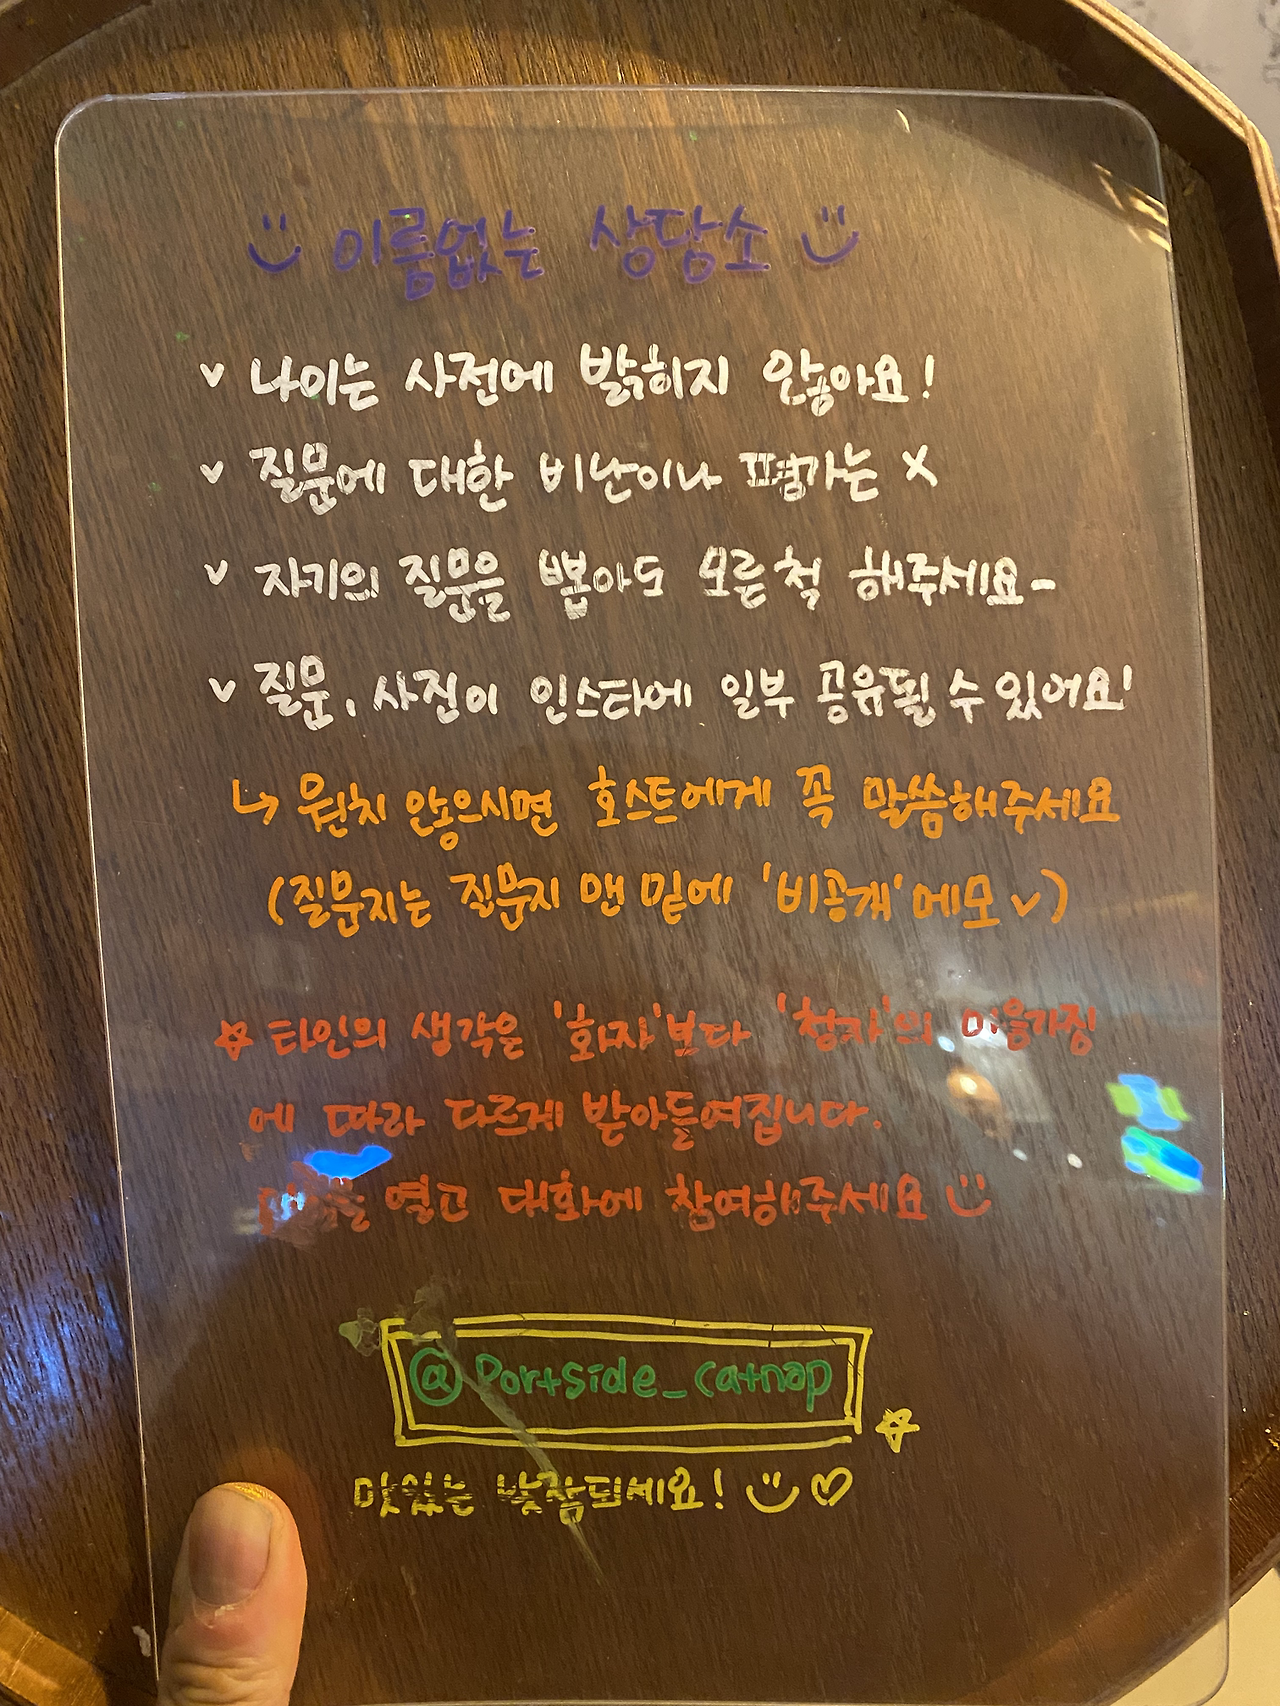 이름없는 상담소
v 나이는 사전에 밝히지 않아요!
v 질문에 대한 비난이나 평가는 X
v 자기의 질문을 뽑아도 모른척 해주세요-
v 질문, 사진이 인스타에 일부 공유될 수 있어요!
↳ 원치 않으시면 호스트에게 꼭 말씀해주세요
(질문지는 질문지 맨 밑에 '비공개' 메모 v)
☆ 타인의 생각은 '화자'보다 '청자'의 마음가짐
에 따라 다르게 받아들여집니다.
열고 대화에 참여해주세요
@Portside_catnap
맛있는 낮잠되세요! ♡